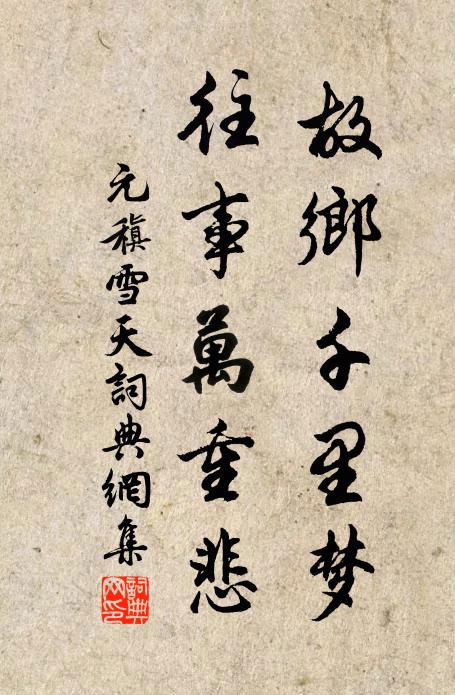 故鄉千里梦
往事萬重悲
元稹雪天詞典網集
詞典网印